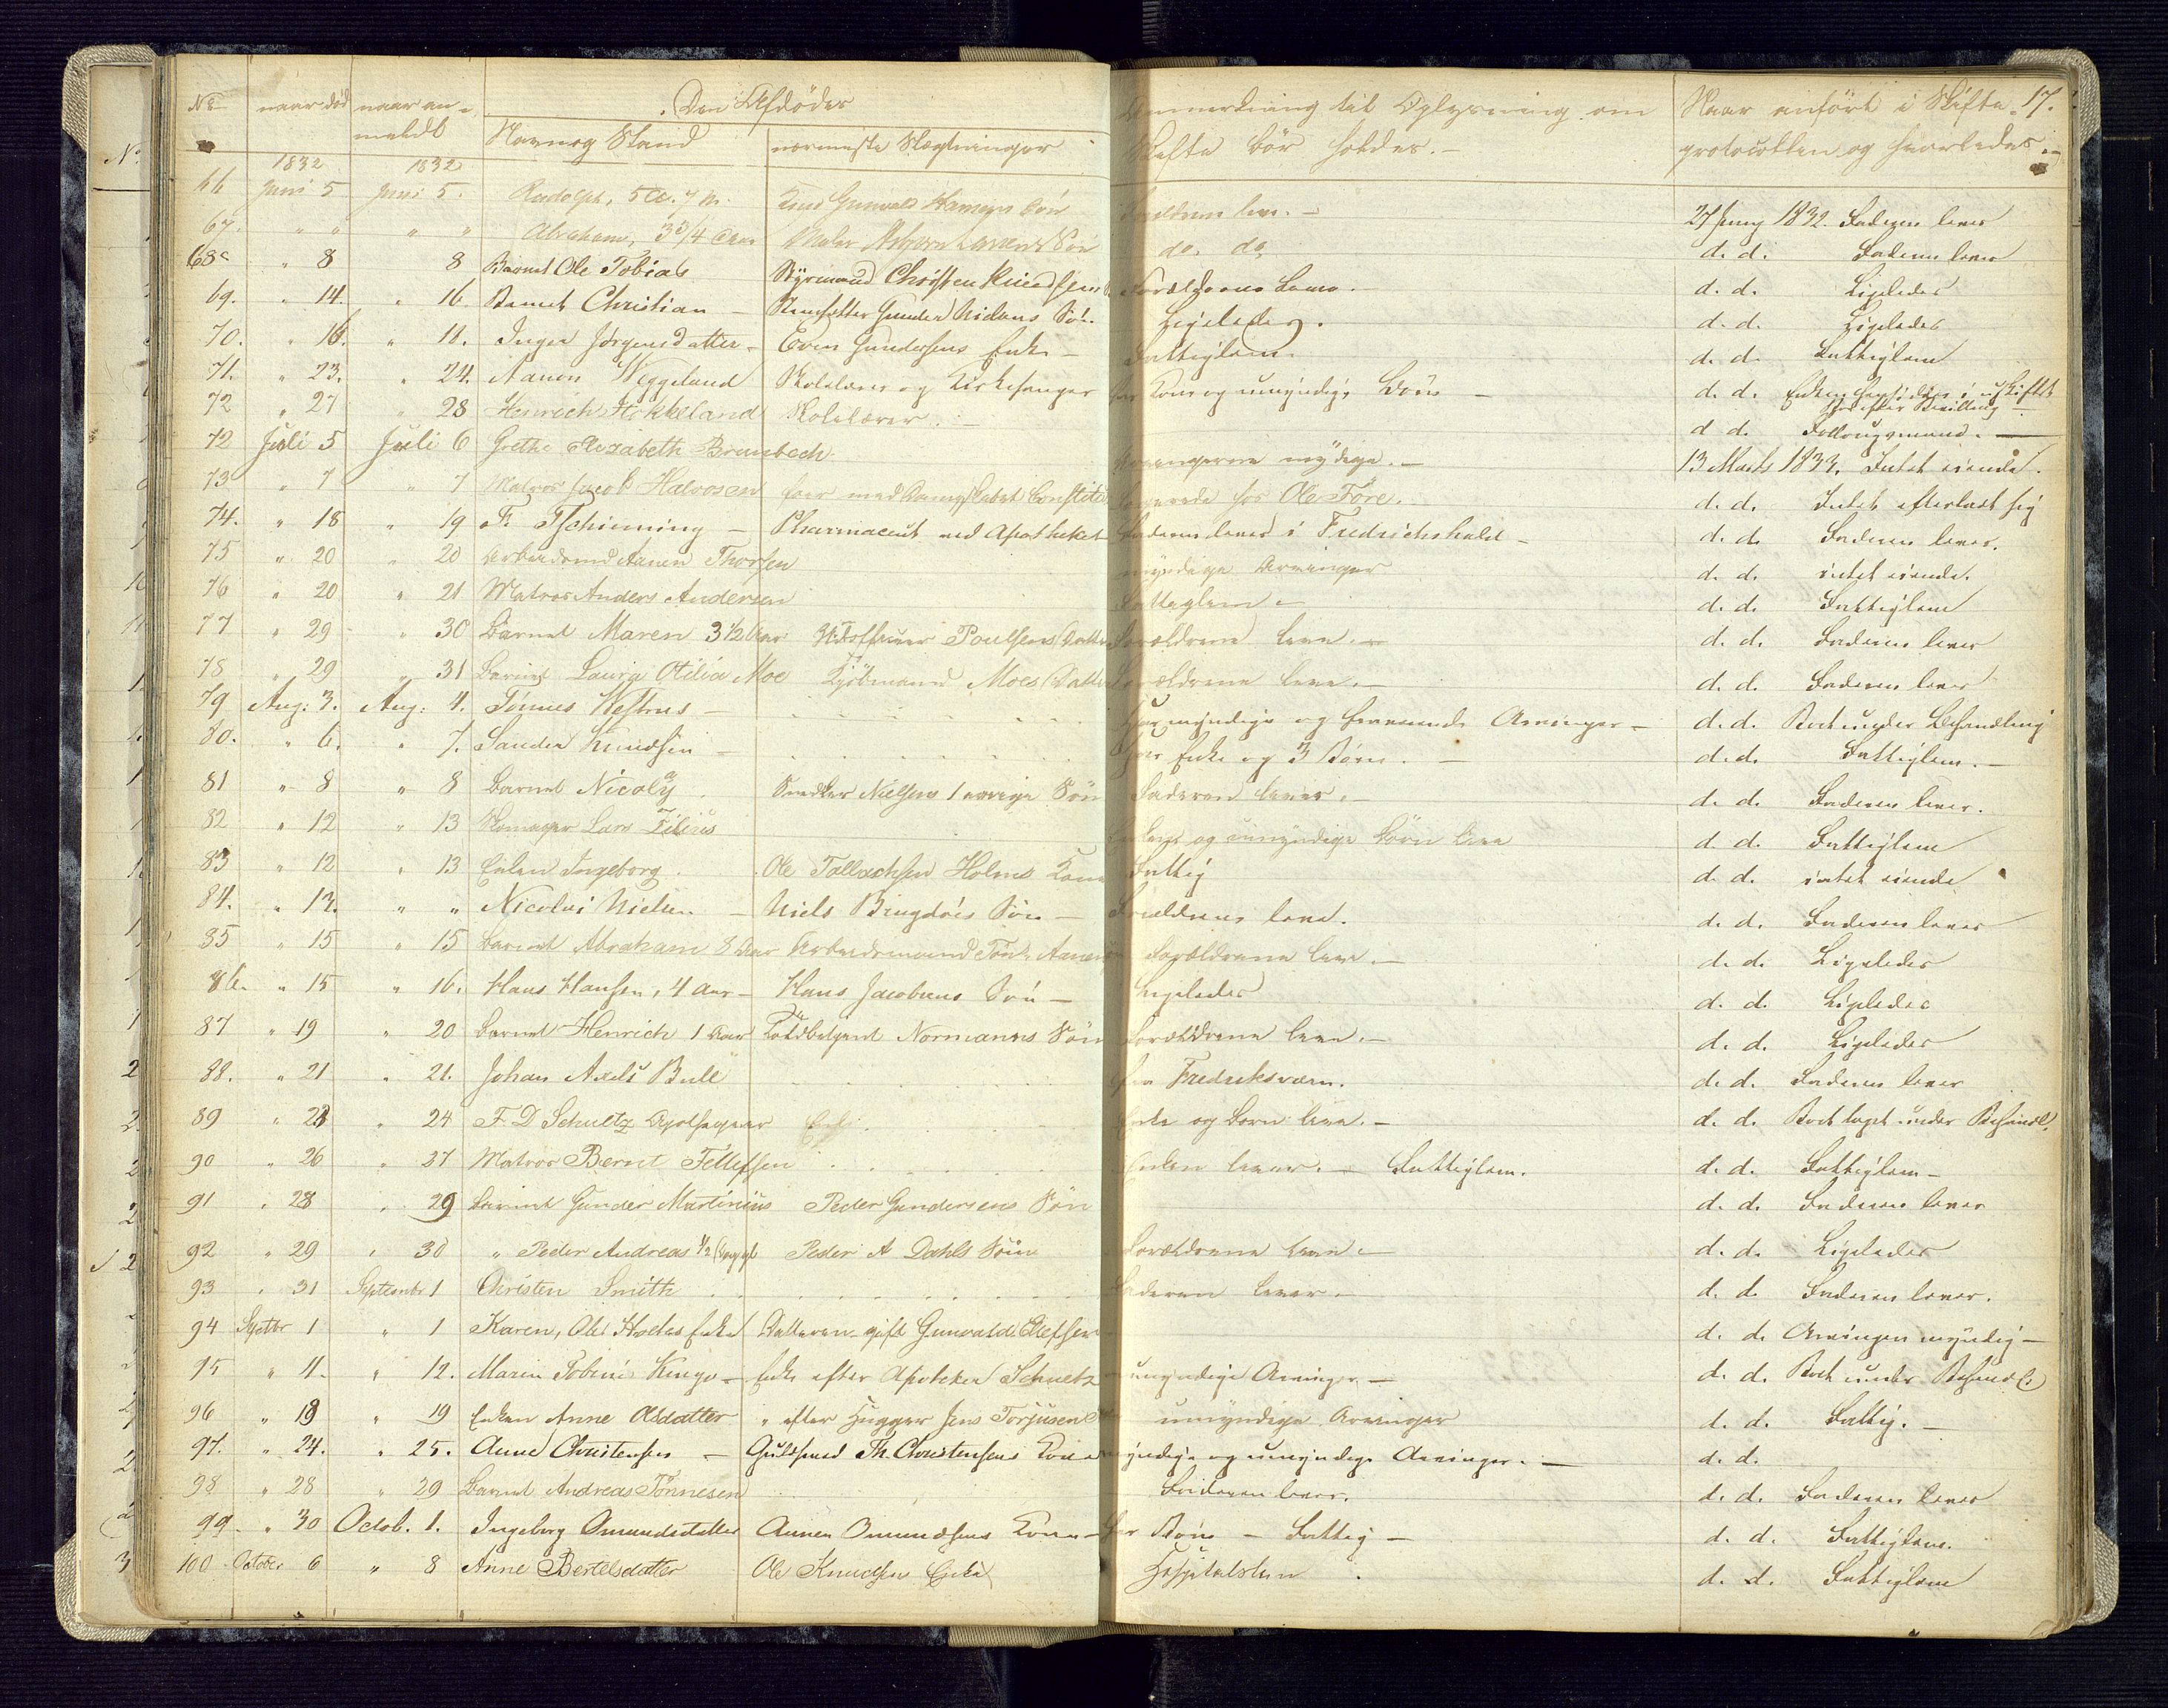 No naar död naar an- Den Afdödes Anmerkning til Oplysning om Naar anfört i Skifte 17.
meldt Navn og Stand nærmeste Slægtninger Skifte bör holdes.- protocollen og hvorledes.-
1832 1832
66 Juni 5 Juni 5. Rudolph, 5 Knud Gunvald Hansens Sön Forældrene leve.- 27 Juny 1832. Faderen lever
67. " " " " Abraham, 3 3/4 Aar Maler Asbjørn Larsens Sön do. do. d. d. Faderen lever
68 " 8 8 Barnet Ole Tobias Styrmand Christen Knudsens Forældrene Leve.- d. d. Ligeledes
69. " 14. " 16. Barnet Christian - Gunder Nielsens Sön. Ligeledes. d. d. Ligeledes
70. " 16. " 18. Inger Jörgensdatter - Even Gundersens Enke - Fattiglem. d. d. Fattiglem
71. " 23. " 24. Aanen Weggeland Skolelærer og Kirkesanger har Kone og umyndige Börn - d. d. Enken hensidder i uskiftet
Boe efter Bevilling -
72 " 27 " 28 Henrich Stokkeland Skolelærer. d. d.
72 Juli 5 Juli 6 Grethe Elezabeth Brunbech Arvingerne mÿdige.- 13 Marts 1833. Intet eiende.
73 " 7 " 7 Matros Jacob Halvorsen foer med Dampskibet Constitut logerede hos Ole Fore. d. d. Intet efterladt sig
74. " 18 " 19 F. Tschinning - Pharmaceut ved Apotheket Faderen lever i Fredrichshald - d. d. Faderen lever.
75 " 20 " 20 Arbeidsmd Aanen Thorsen myndige Arvinger d. d. intet eiende.
76 " 20 " 21 Matros Anders Andersen Fattiglem - d. d. Fattiglem
77 " 29 " 30 Barnet Maren 3 1/2 Aar Poulsens Datter Forældrene leve.- d. d. Faderen lever
78 " 29 " 31 Barnet Laura Otilia Moe Kjöbmand Moes Datter Forældrene leve.- d. d. Faderen lever
79 Aug: 3. Aug: 4. Tönnes Westrus - Har myndige og fraværende Arvinger - d. d. Boet under Behandling
80. " 6. " 7. Sander Knudsen - har Enke og 3 Börn. - d. d. Fattiglem.-
81 " 8 " 8 Barnet Nicolay Snedker Nielsens 1 aarige Sön Faderen lever.- d. d. Faderen lever.
82 " 12 " 13 Lars Enken og umyndige Börn leve d. d. Fattiglem
83 " 12 " 13 Ellen Ingeborg Ole Tallachsen Holms Kone Fattig d. d. intet eiende
84. " 13. " " Nicolai Nielsen - Niels Bringdöis Sön - Forældrene leve. d. d. Faderen lever
85 " 15 " 15 Barnet Abraham 8 Aar Arbeidsmand Tönn. Aanens Forældrene leve.- d. d. Ligeledes
86. " 15 " 16. Hans Hansen, 4 Aar - Hans Jacobsens Sön - Ligeledes d. d. Ligeledes
87 " 19 " 20 Barnet Henrich 1 Aar Toldbetjent Normanns Sön Forældrene leve.- d. d. Ligeledes
88. " 21 " 21. Johan Axels Bull fra Fredriksværn. d. d. Faderen lever
89 " 23 " 24 F. D Schultz Enke og Børn leve.- d. d. Boet taget under Behandl.
90 " 26 " 27 Matros Bernt Tellefsen Enken lever. - Fattiglem. d. d. Fattiglem -
91 " 28 " 29 Barnet Gunder Martinius Peder Gundersens Sön d. d. Faderen lever
92 " 29 " 30 " Peder Andreas 1/2 Peder A Dahls Sön Forældrene leve.- d. d. Ligeledes
93 " 31 September 1 Christen Smith Faderen lever.- d. d. Faderen lever.
94 Septbr 1 " 1 Karen, Ole Enke Datteren gift Gunvald Ellefsen d. d. Arvingen myndig -
95 " 11. " 12. Maren Tobine Kinge - Enke efter Apoteker Schultz umyndige Arvinger - d. d. Boet under Behandl.
96 " 18 " 19 Enken Anne Olsdatter " efter Hugger Jens Torjusen umyndige Arvinger d. d. Fattig. -
97. " 24. " 25. Anne Christensen - Guldsmed Th. Christensens Kone myndige og umyndige Arvinger. - d. d.
98 " 28 " 29 Barnet Andreas Tönnesen Faderen lever. d. d. Faderen lever
99. " 30 Octob. 1. Ingeborg Omundsdatter Aanen Omundsens Kone - har Börn - Fattig - d. d. Fattiglem.
100 October 6 " 8 Anne Bertelsdatter Ole Knudsens Enke Hospitalslem d. d. Fattiglem